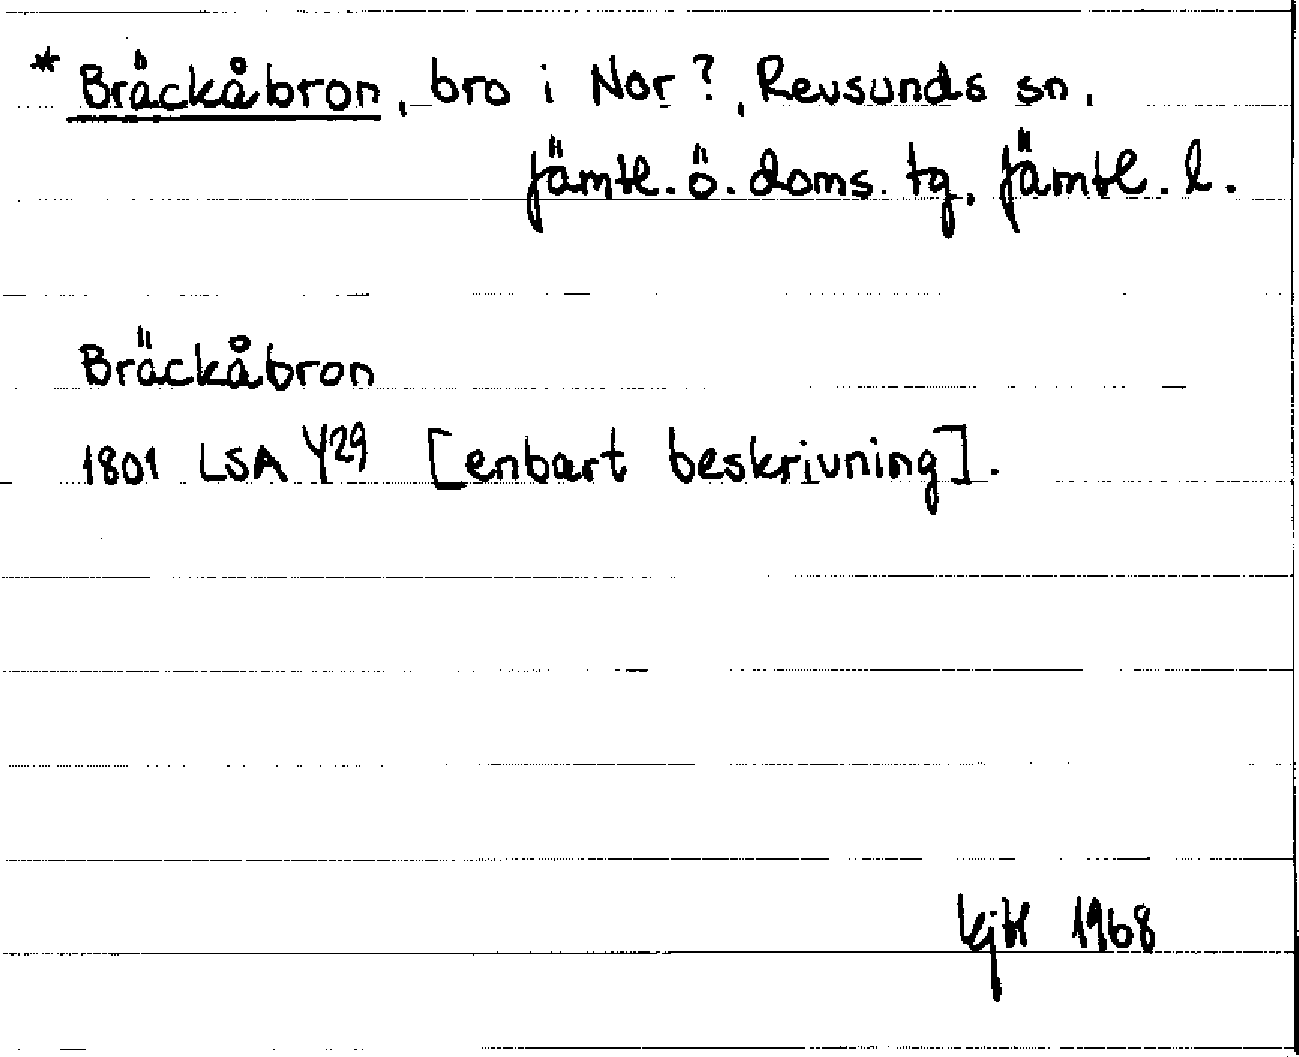 * Bräckåbron, bro i Nor?, Revsunds sn,
Jämtl. ö. doms. tg, Jämtl. l.
Bräckåbron
1801 LSA Y29 [enbart beskrivning].
1968